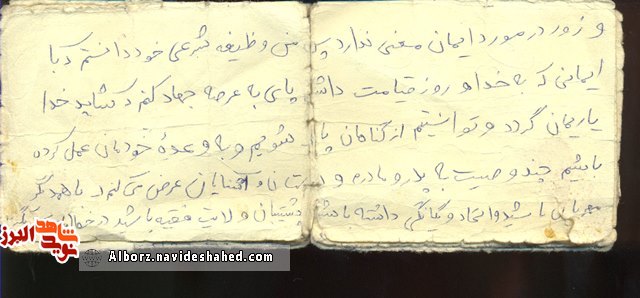 و زور در مورد ایمان معنی ندارد پس من وظیفه شرعی خود دانستم که با
ایمانی که به خدا و روز قیامت داشتم پای به عرصه جهاد کنم که شاید خدا
یاریمان گردد و توانستیم از گناهان پاک شویم و به وعده خودمان عمل کرده
باشیم چند وصیت به پدر و مادرم و دوستان و آشنایان عرض می کنم با همدیگر
مهربان باشید و اتحاد و یگانگی داشته باشید پشتیبان ولایت فقیه باشید در
نوید شاهد البرز
Alborz.navideshahed.com